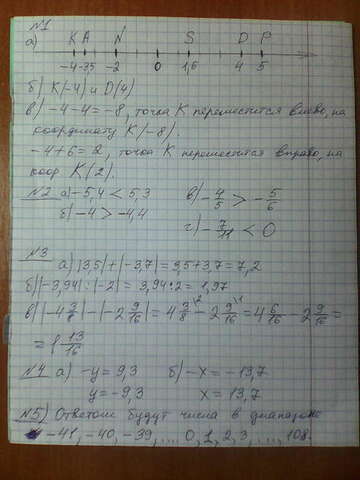 №1
а) К А N 0 S D P
-4 -3,5 -2 0 1,6 4 5
б) К(-4) и D(4)
в) -4-4=-8, точка К переместится влево, на
координату К(-8).
-4+6=2, точка К переместится вправо, на
коор К(2).
№2 а) -5,4 < 5,3 в) -4/5 > -5/6
б) -4 > -4,4 г) -7/11 < 0
№3
а) |3,5|+|-3,7|=3,5+3,7=7,2
б) |-3,94|:|-2|=3,94:2=1,97
в) |-4 3/8|-|-2 9/16|=4 3/8 \2 - 2 9/16 \1 =4 6/16 - 2 9/16 =
= 1 13/16
№4 а) -y=9,3 б) -x=-13,7
y=-9,3 x=13,7
№5) Ответом будут числа в диапазоне
-41, -40, -39, ... 0, 1, 2, 3, ..., 108.